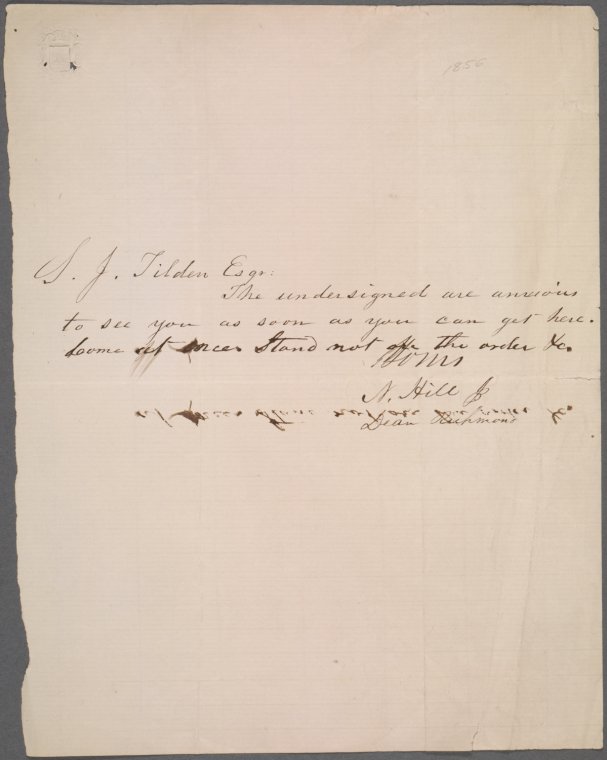 1856
S. J. Tilden Esqr:
The undersigned are anxious
to see you as soon as you can get here.
Come at once. Stand not on the order &c.
Yours
N. Hill Jr
Dean Richmond